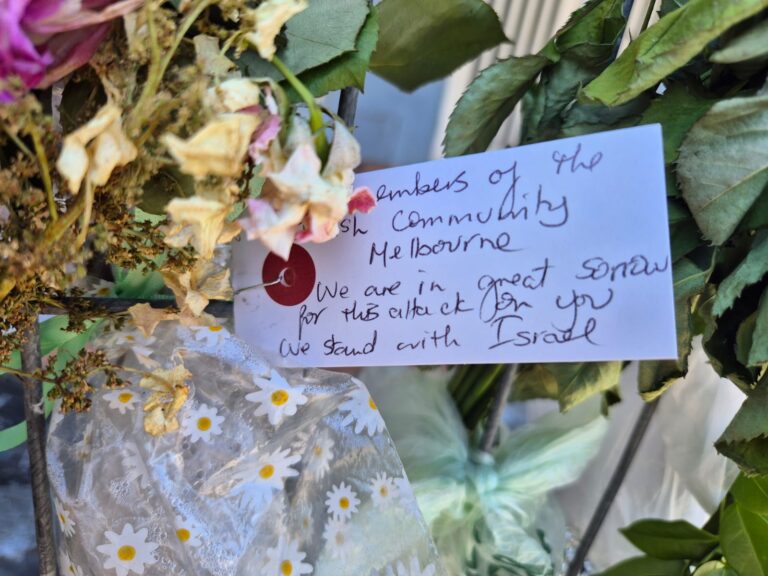 embers of the
sh Community
Melbourne
We are in great sorrow
for this attack on you
We stand with Israel